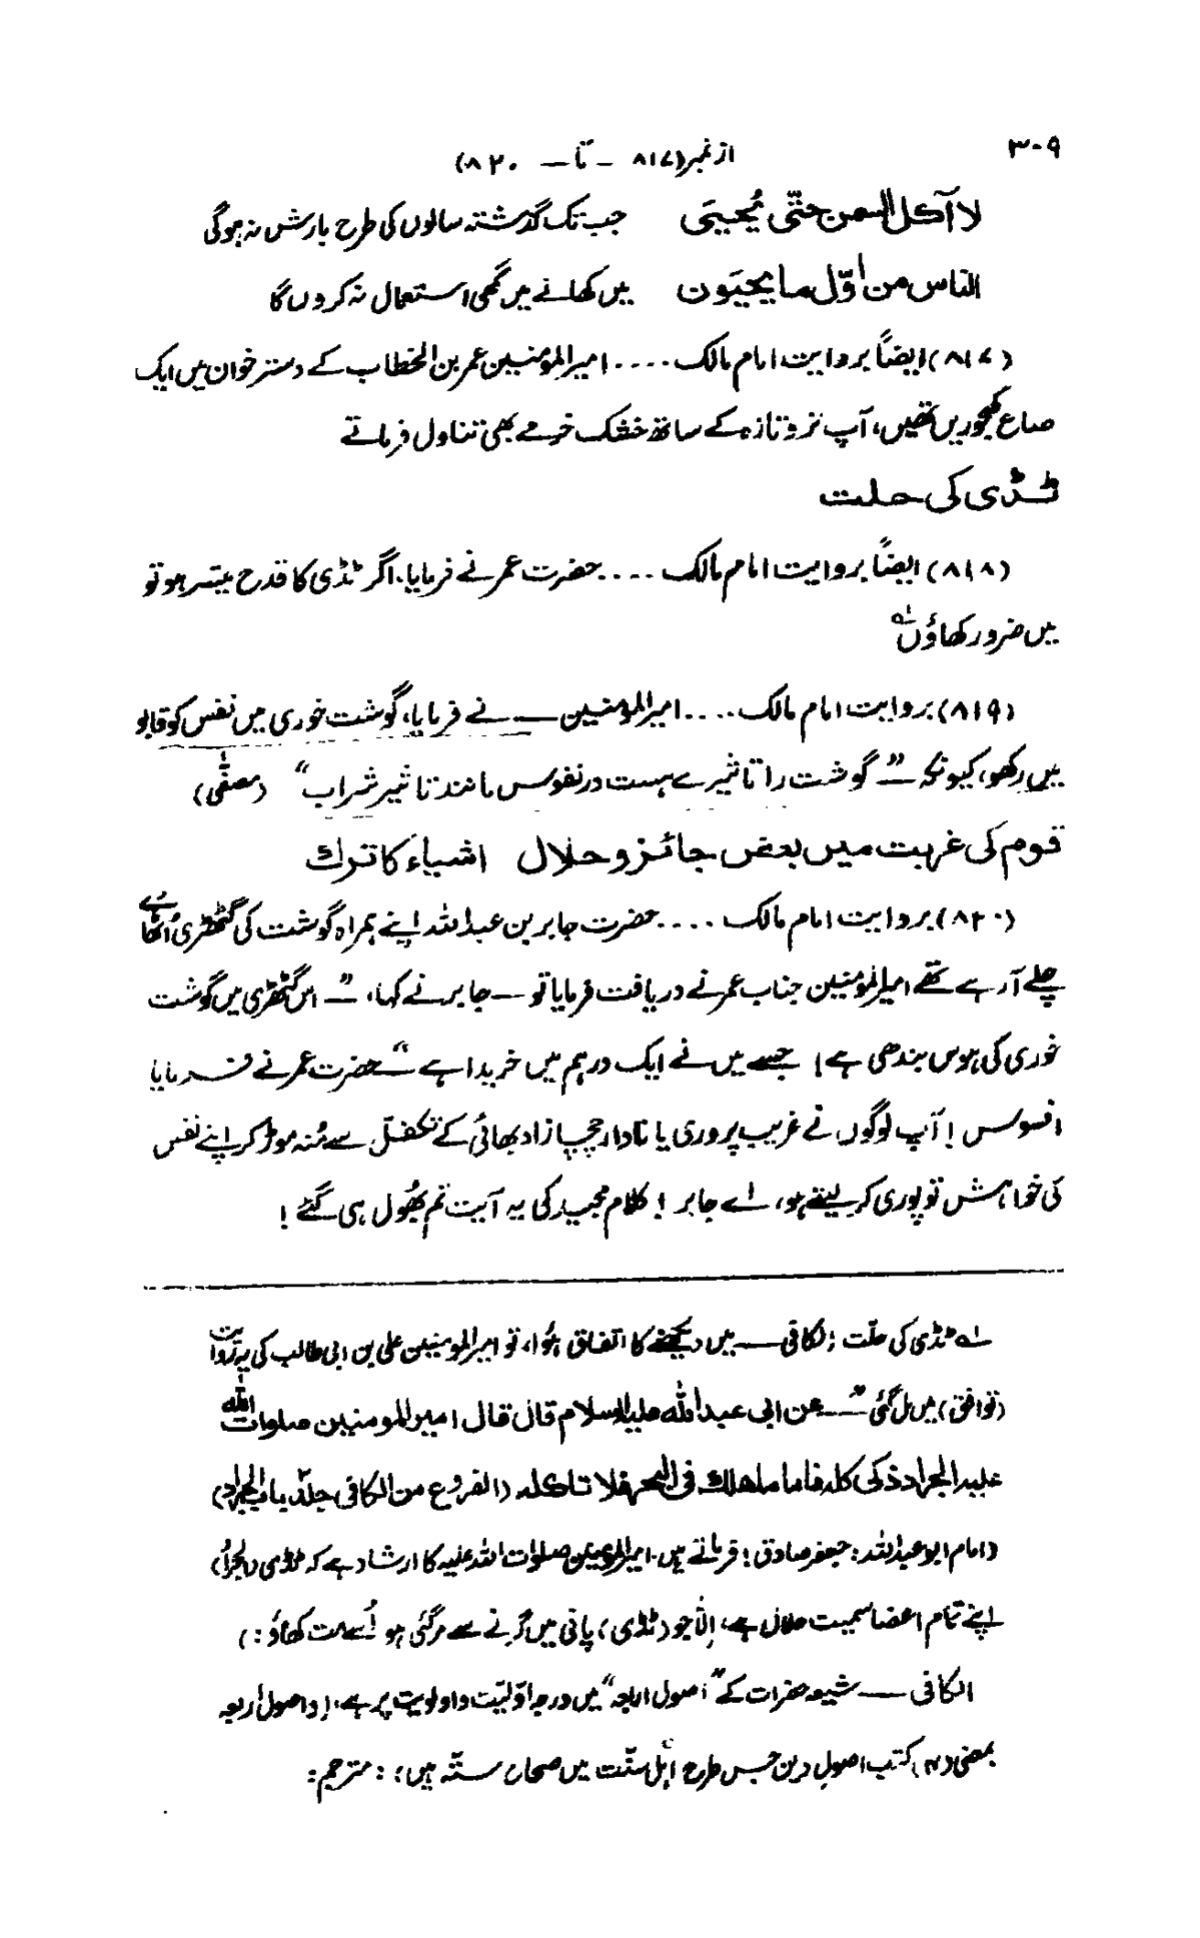 ۳۰۹
از نمبر (۸۱۷ - تا - ۸۲۰)
لا آکل السمن حتّی یُحیَی جب تک گذشتہ سالوں کی طرح بارش نہ ہوگی
الناس من اوّل ما یحیَون میں کھانے میں گھی استعمال نہ کروں گا
(۸۱۷) ایضاً بروایت امام مالک .... امیر المؤمنین عمر بن الخطاب کے دسترخوان میں ایک
صاع کھجوریں تھیں، آپ تروتازہ کے ساتھ خشک خرمے بھی تناول فرماتے
ٹڈی کی حلت
(۸۱۸) ایضاً بروایت امام مالک .... حضرت عمر نے فرمایا، اگر ٹڈی کا قدح میسر ہو تو
میں ضرور کھاؤں ؎۱
(۸۱۹) بروایت امام مالک .... امیر المومنین — نے فرمایا، گوشت خوری میں نفس کو قابو
میں رکھو، کیونکہ — ”گوشت را تاثیرے ہست در نفوس مانند تاثیر شراب“ (مصفّٰی)
قوم کی غربت میں بعض جائز و حلال اشیاء کا ترک
(۸۲۰) بروایت امام مالک .... حضرت جابر بن عبداللہ اپنے ہمراہ گوشت کی گٹھڑی اُٹھائے
چلے آرہے تھے امیر المؤمنین جناب عمر نے دریافت فرمایا تو — جابر نے کہا، — ”اس گٹھڑی میں گوشت
خوری کی ہوس بندھی ہے! جسے میں نے ایک درہم میں خریدا ہے“ — حضرت عمر نے فرمایا
افسوس! آپ لوگوں نے غریب پروری یا نادار چچا زاد بھائی کے تکفّل سے مُنہ موڑ کر اپنے نفس
کی خواہش تو پوری کر لیتے ہو، اے جابر! کلام مجید کی یہ آیت تم بھُول ہی گئے!
؎۱ ٹڈی کی حلّت: الکافی — میں دیکھنے کا اتفاق ہُوا، تو امیر المومنین علی بن ابی طالب کی یہ روایت
(توافق) میں مل گئی — ”عن ابی عبد اللہ علیہ السلام قال قال امیر المومنین صلوات اللہ
علیہ الجراد ذکی کلہ فاما ما ھلک فی البحر فلا تاکلہ (الفروع من الکافی جلد باب الجراد)
(امام ابو عبداللہ: جعفر صادق: فرماتے ہیں۔ امیر المومنین صلوات اللہ علیہ کا ارشاد ہے کہ ٹڈی (الجراد)
اپنے تمام اعضا سمیت حلال ہے، اِلّا جو (ٹڈی) پانی میں گرنے سے مرگئی ہو اُسے مت کھاؤ:)
الکافی — شیعہ حضرات کے ”اصول اربعہ“ میں درجہ اوّلیّت و اولویت پر ہے، (و اصول اربعہ
بمعنی (۴) کتب اصولِ دین جس طرح اہل سنّت میں صحاح ستّہ ہیں؛ : مترجم: